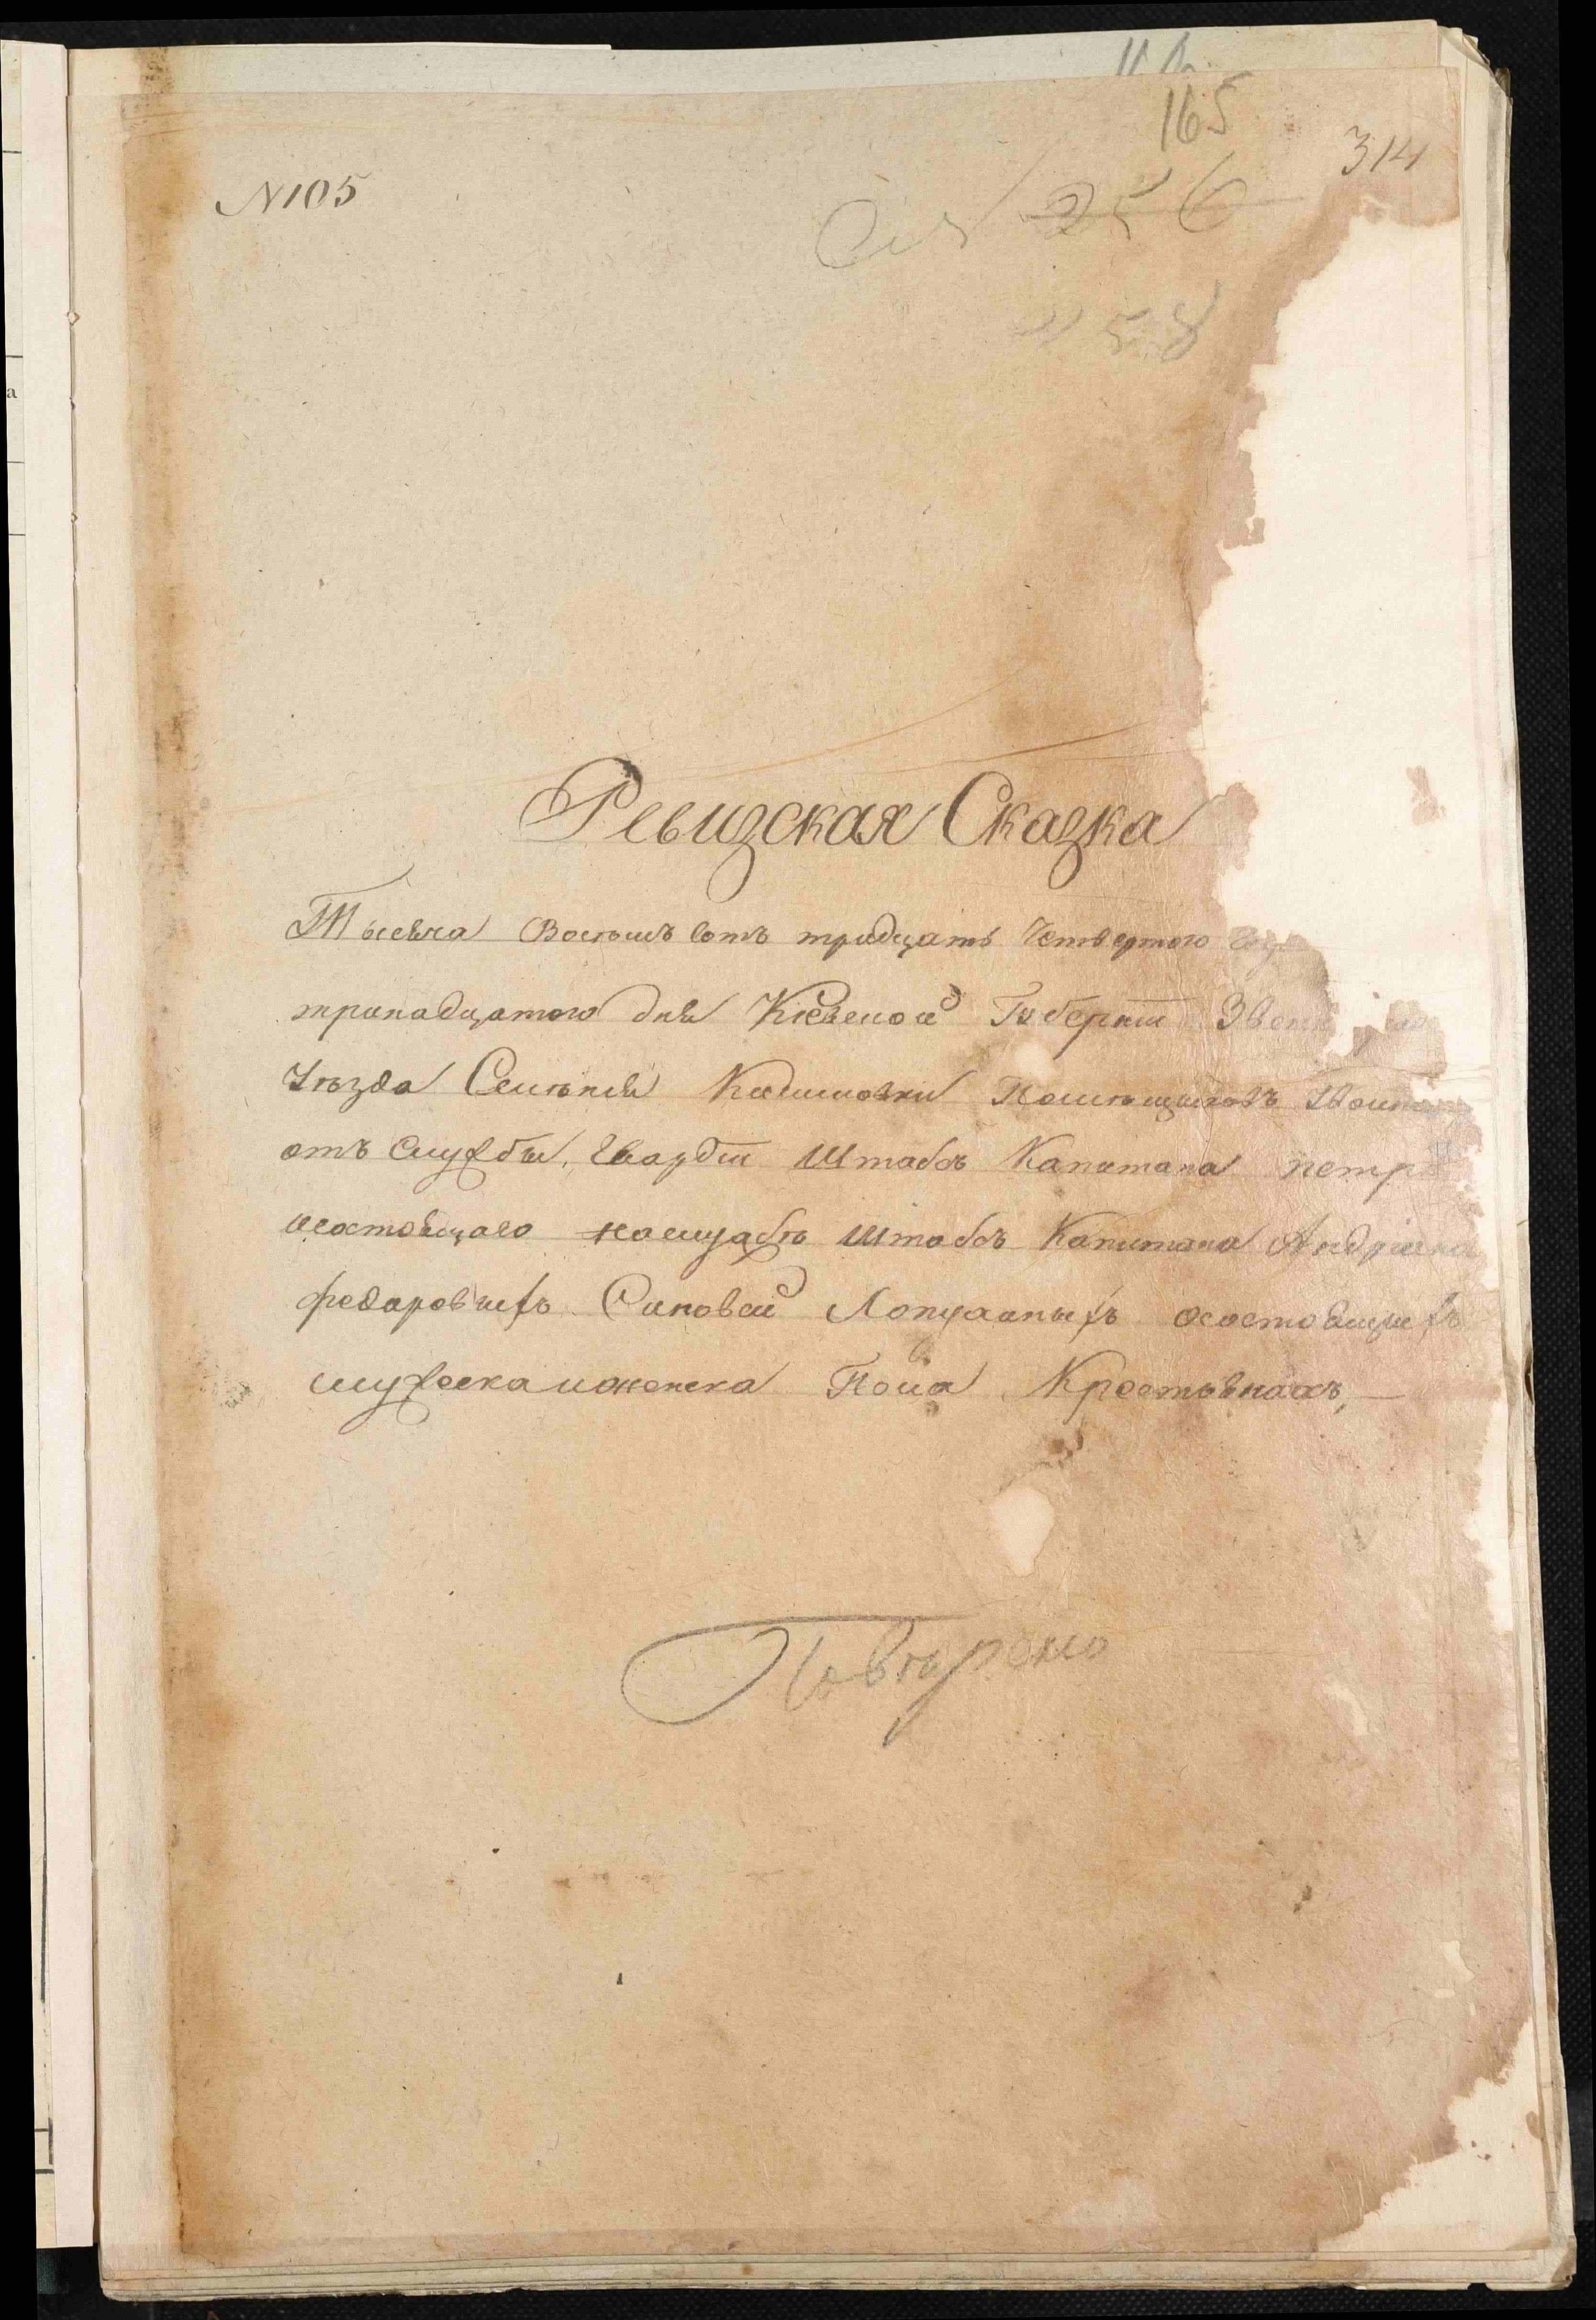 165
314
N105
256
258
Ревизская Сказка
Тысеча Восемъ сотъ тридцать Четвертого
тринадцатого дня Кіевской Губерніи Звен
Уѣзда Селѣнія Помѣщиковъ
отъ службы, Гвардіи Штабсъ Капитана петр
исостоящаго наслужбѣ Штабсъ Капитана Андріяна
федаровичъ Сиповей Лопухиныхъ осостоящихъ
мужеска иженска Пола Крестьянахъ,
Повѣрено